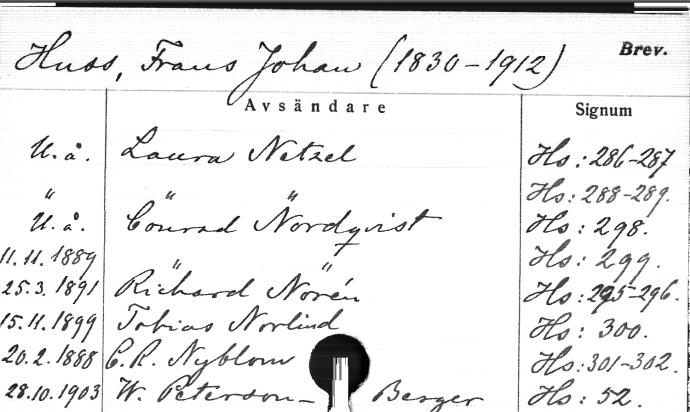 Huss, Frans Johan (1830-1912) Brev.
Avsändare Signum
U. å. Laura Netzel Hs: 286-287
" " " Hs: 288-289.
U. å. Conrad Nordqvist Hs: 298.
11.11.1889 " " Hs: 299.
25.3.1891 Richard Norén Hs: 295-296.
15.11.1899 Tobias Norlind Hs: 300.
20.2.1888 C.R. Nyblom Hs: 301-302.
28.10.1903 W. Peterson-Berger Hs: 52.